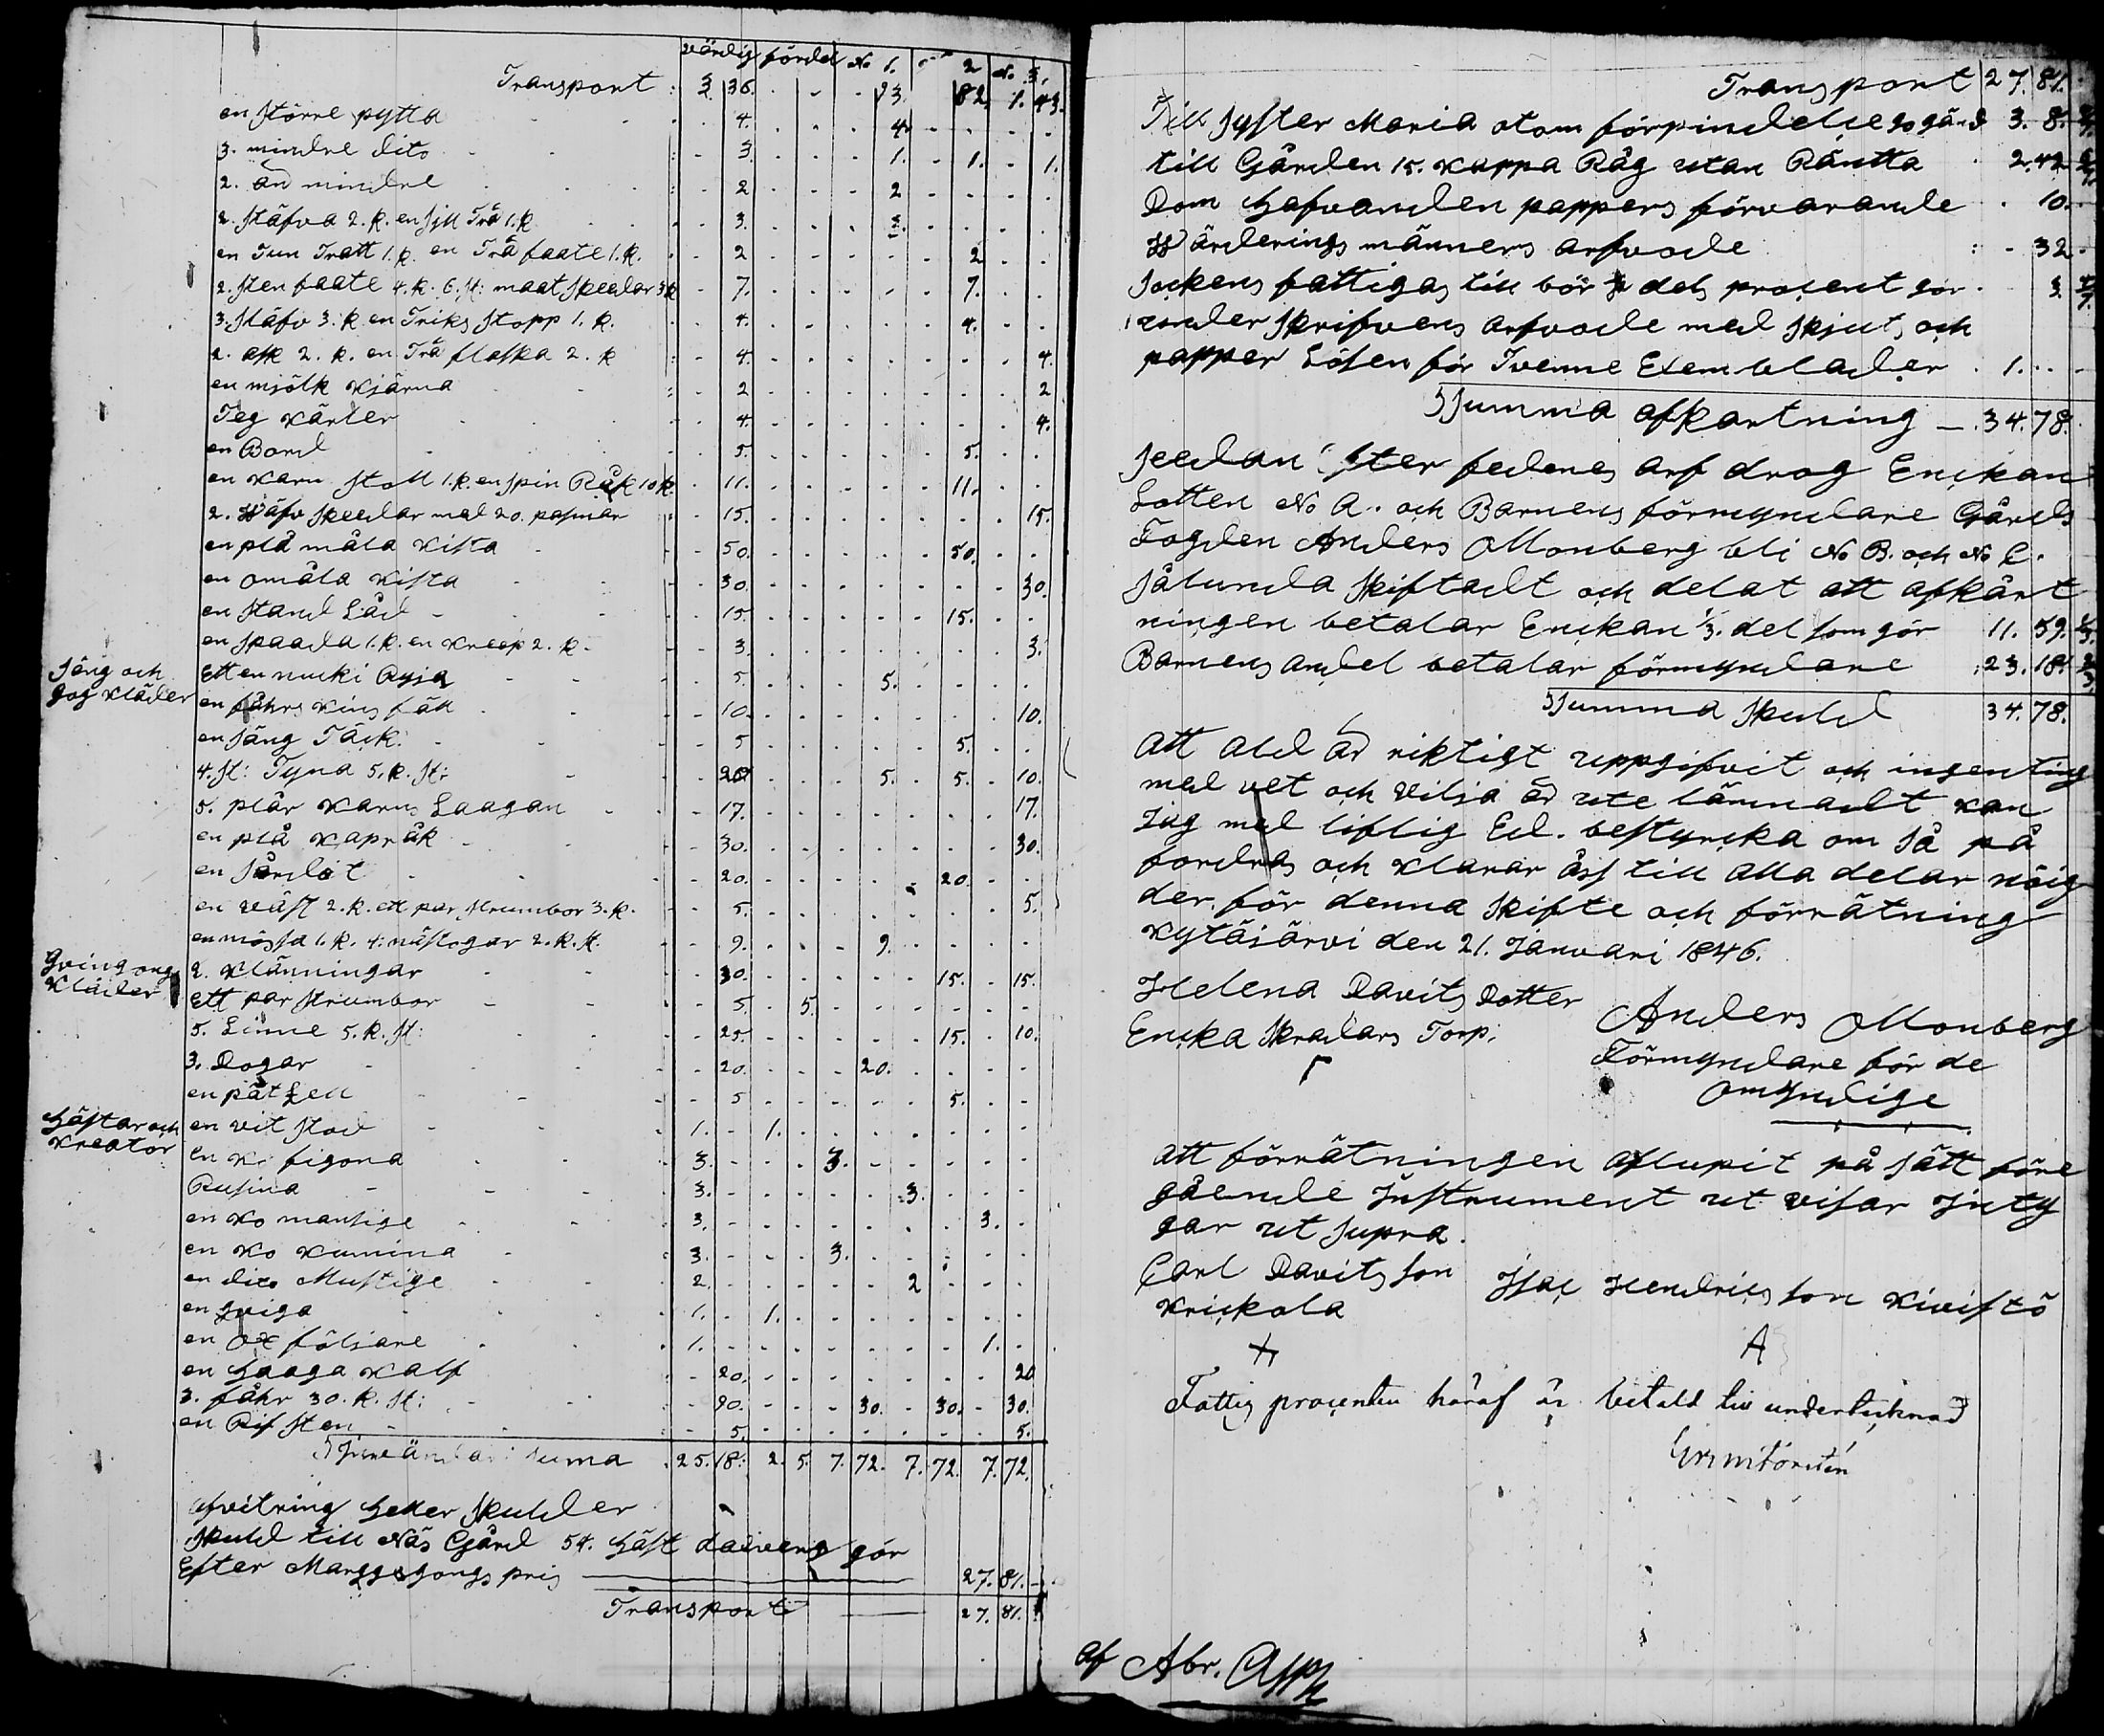 värdig fördel No 1. 2 No 3.
Transport : 3. 36. 93. 82. 1. 43.
en större pytta 4. 4.
3. mindre dito 3. 1. 1. 1.
2. än mindre 2 2
2. stäfva 2. k. en sill Trä 1. k 3. 3.
en Tun Tratt 1. k. en Trä faate 1. k. 2 2
2. sten faate 4. k. 6. st: maat skedar 3 k 7. 7.
3. stäfv 3. k en Triks stopp 1. k. 4. 4.
2. ask 2. k. en Trä flaska 2. k 4. 4.
en mjölk kjärna 2 2
Teg kärler 4. 4.
en Bord 5. 5.
en karm stoll 1. k. en spin Råk 10 k. 11. 11.
2. Wäfv skedar med 20. pasmar 15. 15.
en plå måla kista 50. 50.
en omåla kista 30. 30.
en stand Låd 15. 15.
en spaada 1. k. en kreep 2. k 3. 3.
Säng och Ett en nucki Ryja 5. 5.
gog kläder en fåhrs kins fäll 10. 10.
en säng Täck. 5 5.
4. st: Tyna 5. k. st: 20 5. 5. 10.
5. plår karns Laagan 17. 17.
en plå kapråk 30. 30.
en särdåt 20. 20.
en väst 2. k. ett par strumbor 3. k. 5. 5.
en mössa 1. k. 4: näsdogar 2. k. st. 9. 9.
Gving ong 2. klänningar 30. 15. 15.
kläder Ett par strumbor 5. 5.
5. Linne 5. k. st: 25. 15. 10.
3. Dogar 20. 20.
en pätzell 5 5.
Hästar och en vit stod 1. 1.
kreator en ko figona 3. 3.
Rusina 3. 3.
en ko mansige 3. 3.
en ko kumina 3. 3.
en dito Mustige 2. 2
en gviga 1. 1.
en ox följare 1. 1.
en haaga kalf 20. 20
3. fåhr 30. k. st: 90. 30. 30. 30.
en Rif sten 5. 5.
suma 25. 18. 2. 5. 7. 72. 7. 72. 7. 72.
afvitring heller skulder
skuld till Näs Gård 54. häst gör
Efter Marggsgongs pris 27. 81.
Transport 27. 81.
Transport 27. 81.
Till syster Maria otom förpindelse 3. 8.
till Gården 15. kappa Råg utan Räntta 2. 42
Dom hafvanden pappers förvarande 10.
Wärderings männers arfvode 32.
Sockens fattigas till hör dels procent gör 3.
under skrifvens arfvode med skjuts och
papper Lösen för Tvenne Exemblader 1.
Summa afkortning 34. 78.
Sedan efter federnes arf drog Enckan
Lotten No A. och Barnens förmyndare Gårds
Fogden Anders Monberg bli No B. och No C.
Sålunda skiftadt och delat att afkårt
ningen betalar Enckan 1/3. del som gör 11. 59. 1/3.
Barnens andel betalar förmyndare 23. 18. 2/3.
Summa skuld 34. 78.
Att alld är riktigt uppgifvit och ingenting
med vet och vilja är ute lämnadt kan
Jag med liflig Ed. bestyrcka om så på
fordras och klarar åss till alla delar nöig
der, för denna skifte och förrätning
Kytäjärvi den 21. Januari 1846.
Helena Davits Dotter
Encka Skradars Torp.
Anders Monberg
Förmyndare för de
omyndige
Att förrätningen aflupit på sätt före
gående Instrument ut visar Inty
gar ut supra.
Carl Davits son
Krickola
Isac Hendrics son Kivistö
A
Fattig procenten häraf är betald till undertecknad
af Abr.